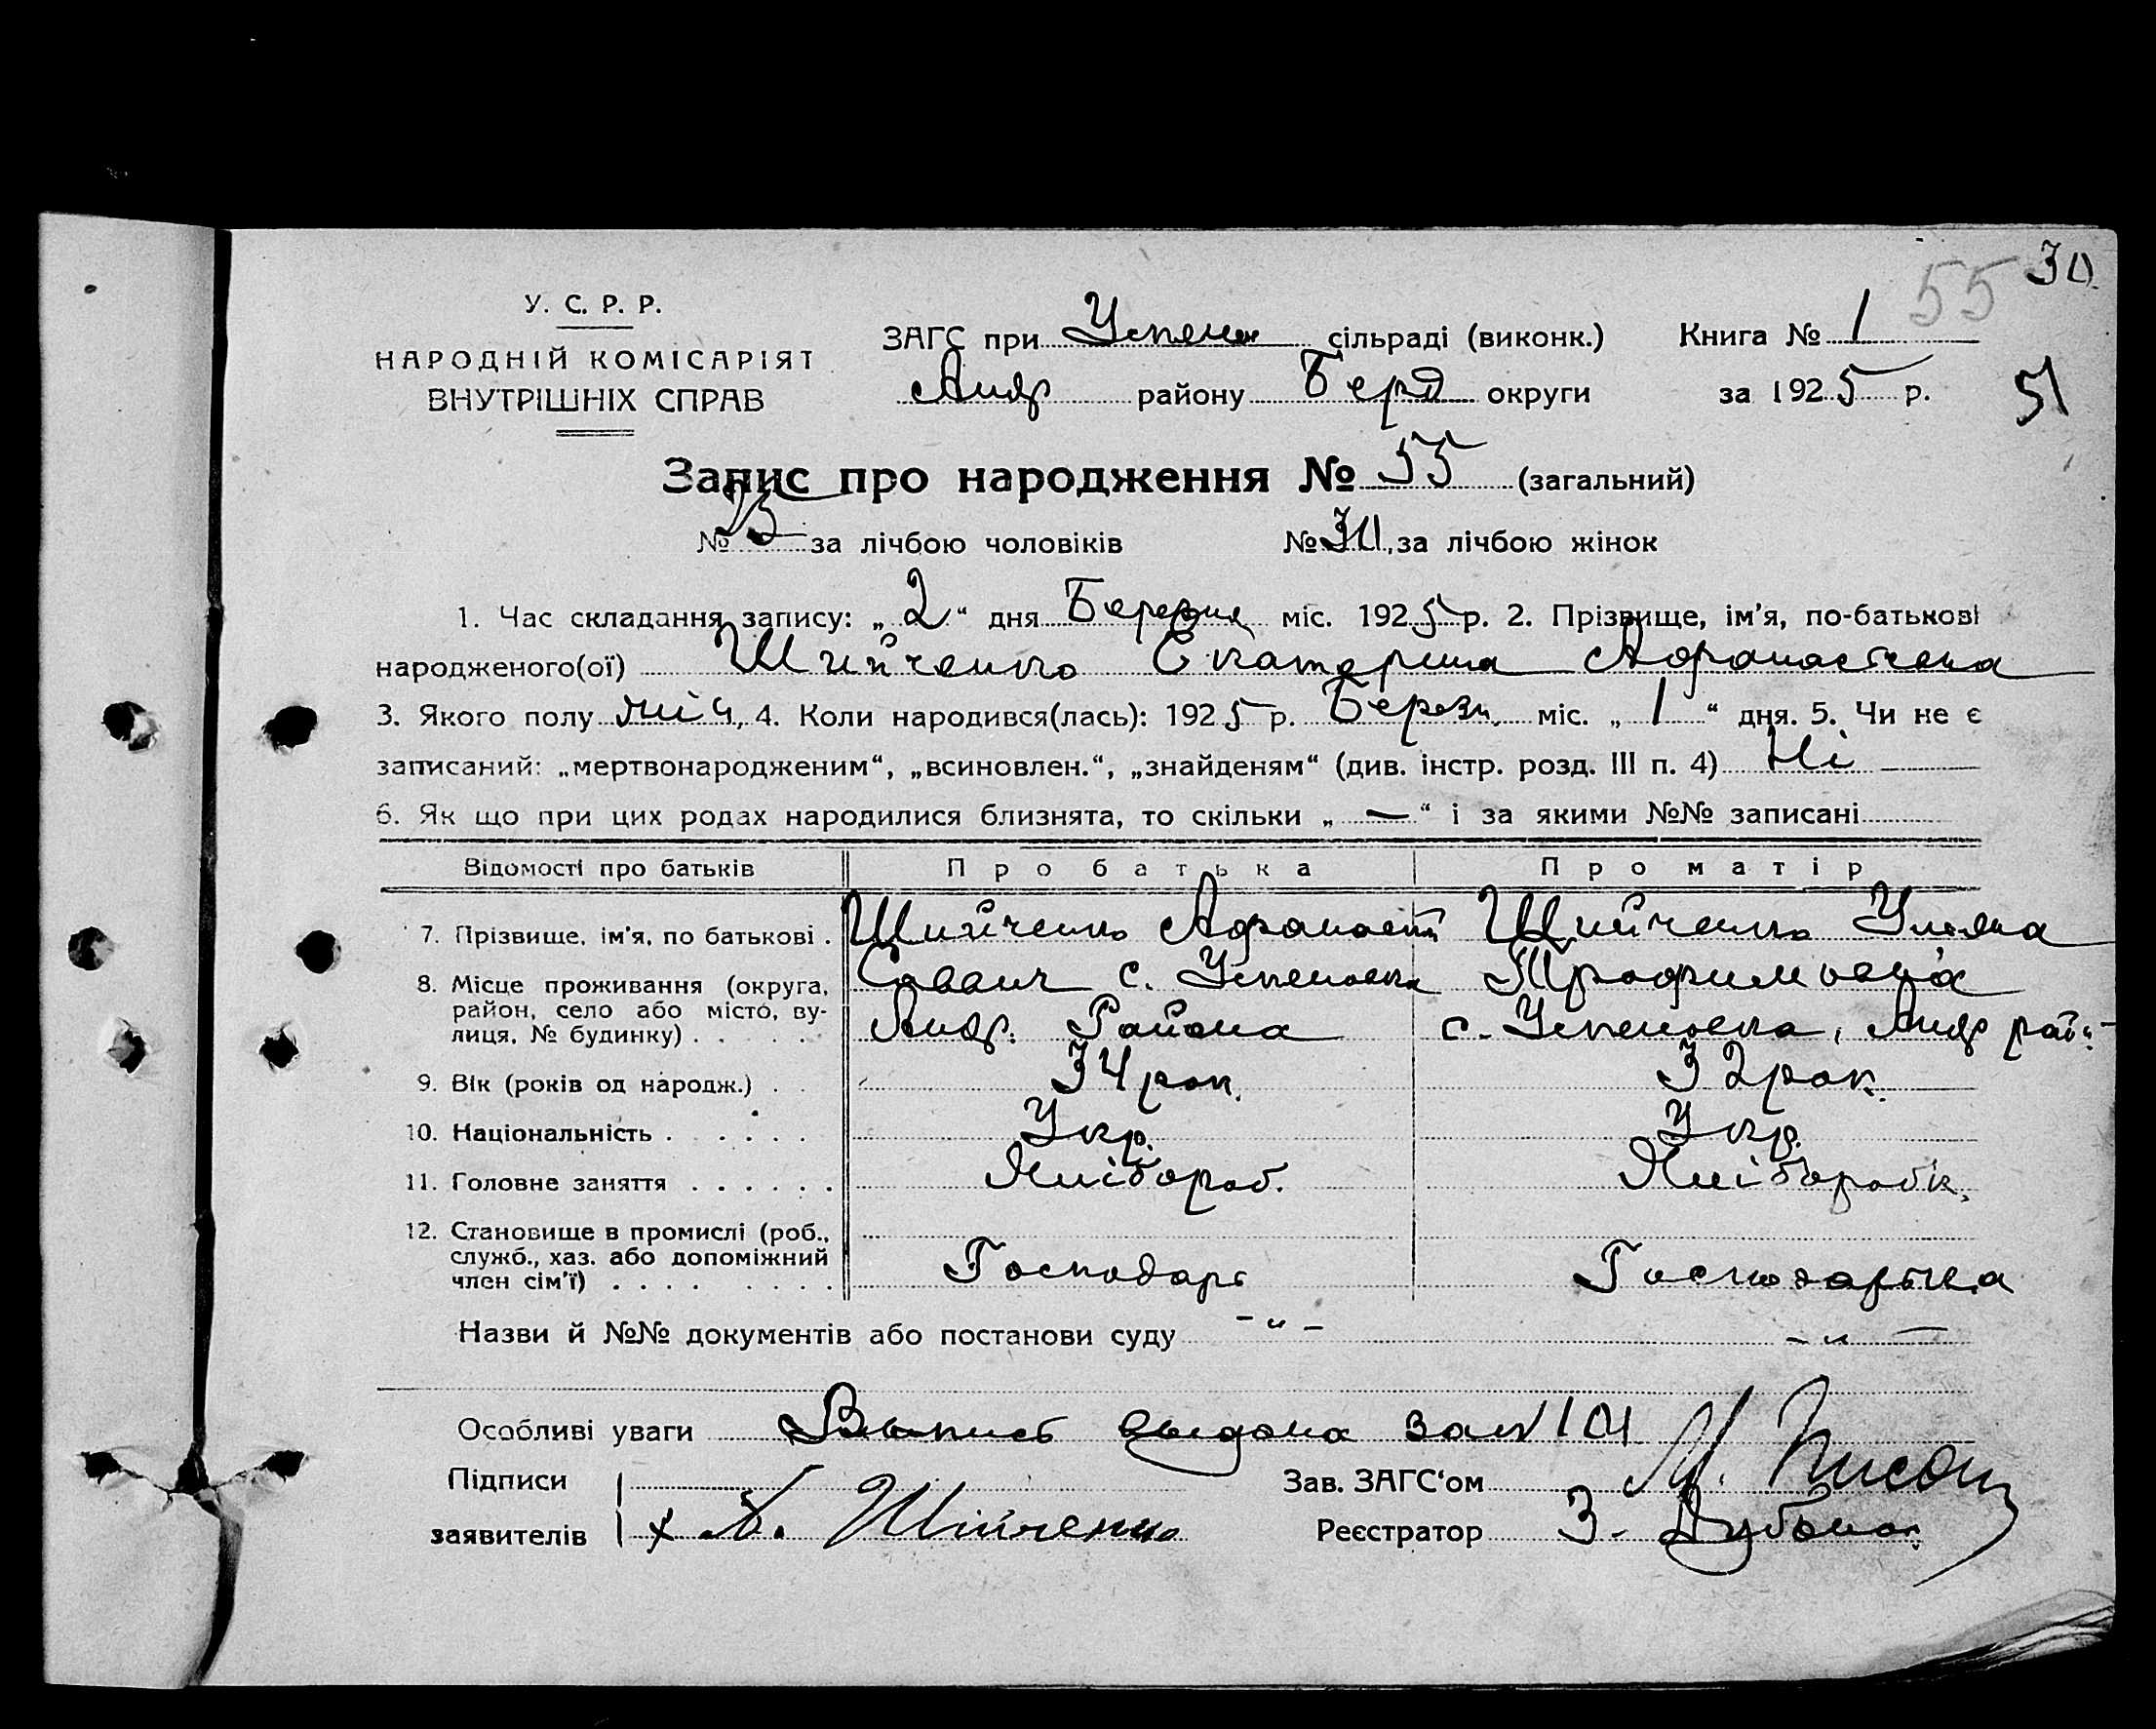 30
55
У. С. Р. Р.
НАРОДНІЙ КОМІСАРІЯТ
ВНУТРІШНІХ СПРАВ
ЗАГС при Успен сільраді (виконк.) Книга № 1
Андр району Берд округи за 1925 р.
51
Запис про народження № 55 (загальний)
№ за лічбою чоловіків № за лічбою жінок
1. Час складання запису: „2“ дня Березня міс. 1925 р. 2. Прізвище, ім'я, по-батькові
народженого(ої) Шийченко Екатерина Афанасієвна
3. Якого полу жін, 4. Коли народився(лась): 1925 р. Березн. міс. „1“ дня. 5. Чи не є
записаний: „мертвонародженим“, „всиновлен.“, „знайденям“ (див. інстр. розд. III п. 4) Ні
6. Як що при цих родах народилися близнята, то скільки „—“ і за якими №№ записані
Відомості про батьків Про батька Про матір
7. Прізвище, ім'я, по батькові . Шийченко Афанасій Шийченко Уляна
8. Місце проживання (округа, Саввич с. Успеновка Трофимовна
район, село або місто, ву-
лиця, № будинку) . . . . Андр. Района с. Успеновка, Андр рай.
9. Вік (років од народж.) . . 34 рок. 32 рок.
10. Національність . . . . . Укр. Укр.
11. Головне заняття . . . . . . Хлібороб. Хлібороб к.
12. Становище в промислі (роб.,
служб., хаз. або допоміжний Господарь Господарька
член сім'ї) . . . . . . . .
Назви й №№ документів або постанови суду - " - - " -
Особливі уваги Выпись выдана за №
Підписи Зав. ЗАГС'ом
заявителів х А. Шийченко Реєстратор З.